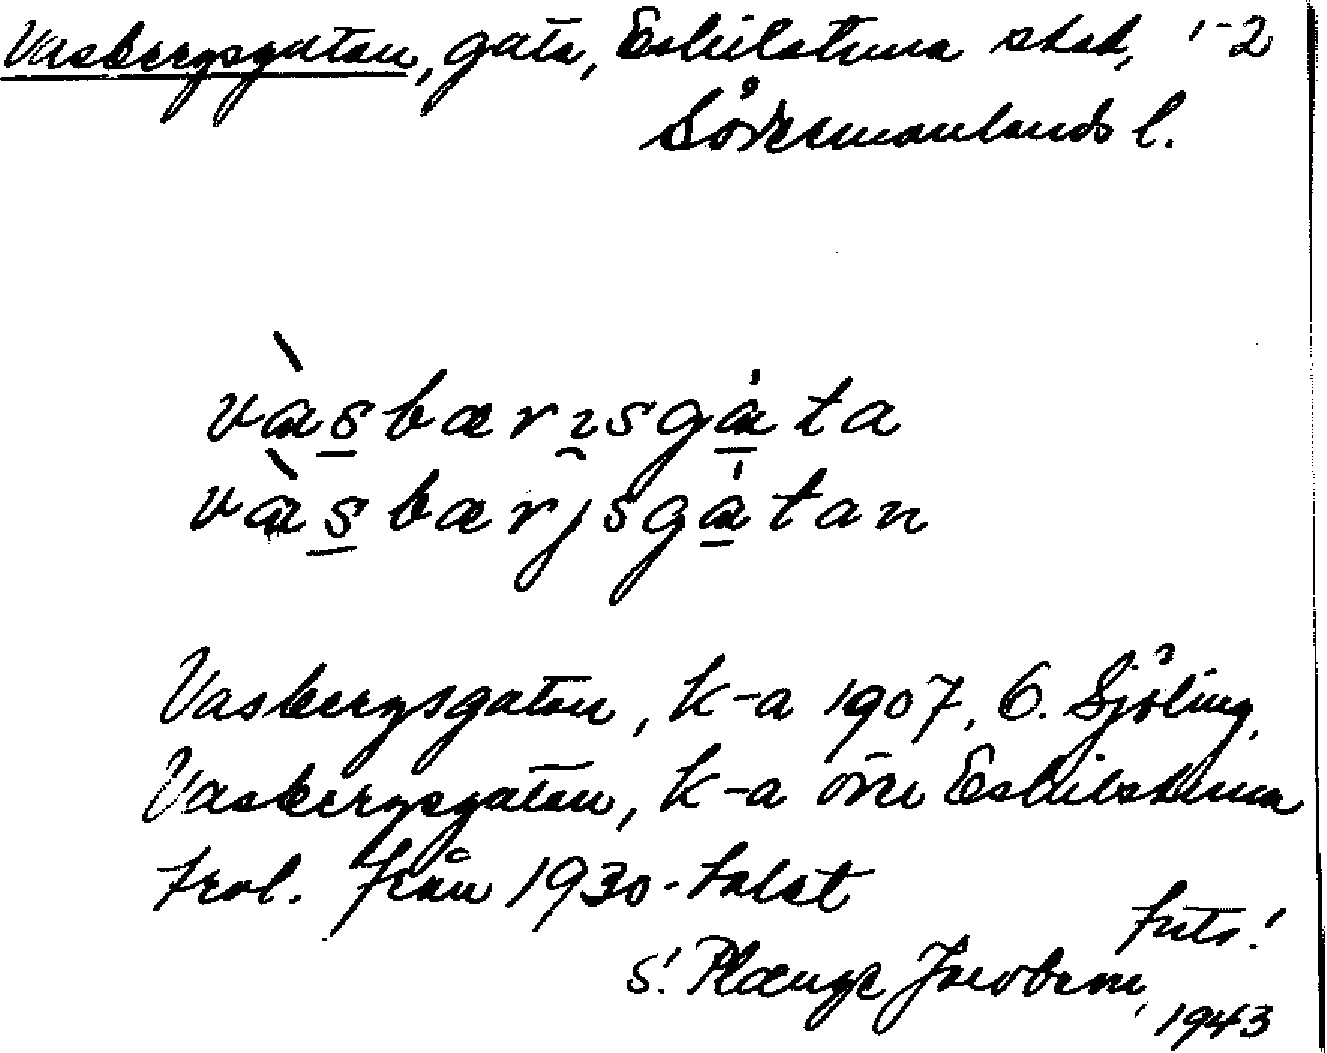 Vasbergsgatan, gata, Eskilstuna stad, 1-2
Södermanlands l.
vàsbærısgáta
vàsbærjsgátan
Vasbergsgatan, k-a 1907, G. Sjöling.
Vasbergsgatan, k-a över Eskilstuna
trol. från 1930-talet
forts.!
S. Plænge Jacobson,
1943